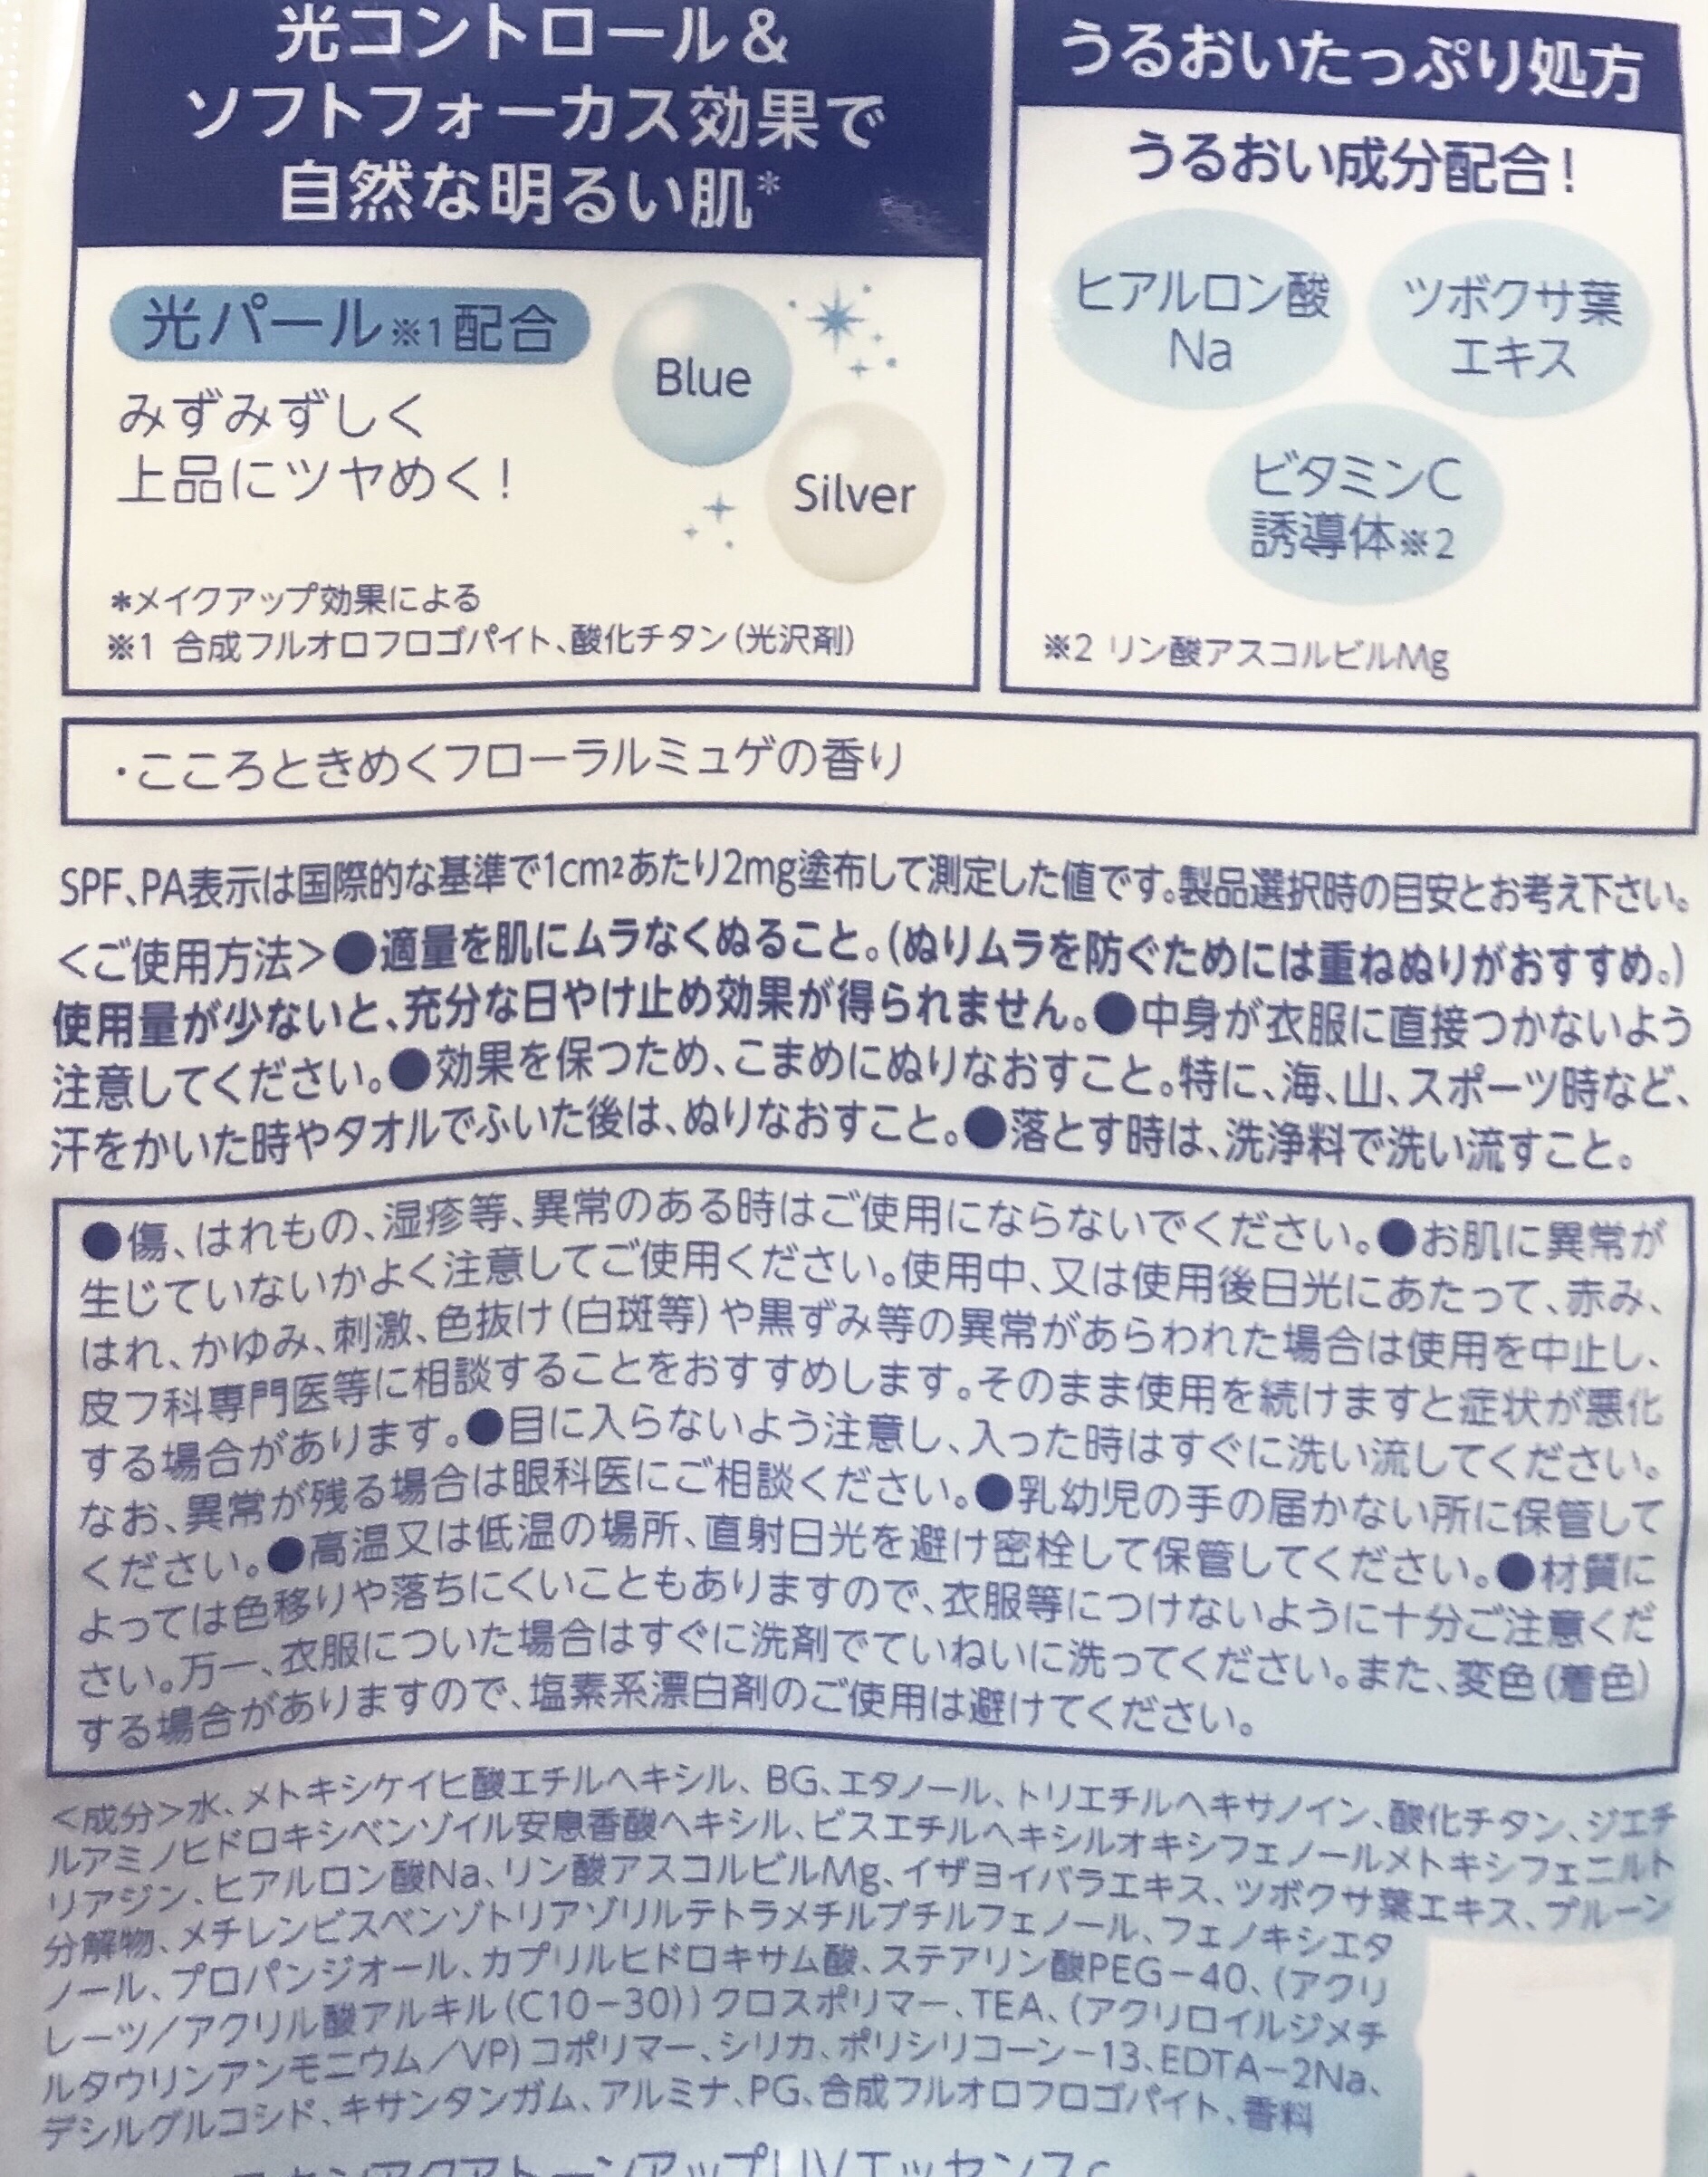 光コントロール&
ソフトフォーカス効果で
自然な明るい肌*
光パール※1配合
みずみずしく
上品にツヤめく!
Blue
Silver
*メイクアップ効果による
※1 合成フルオロフロゴパイト、酸化チタン(光沢剤)
うるおいたっぷり処方
うるおい成分配合!
ヒアルロン酸
Na
ツボクサ葉
エキス
ビタミンC
誘導体※2
※2 リン酸アスコルビルMg
・こころときめくフローラルミュゲの香り
SPF、PA表示は国際的な基準で1cm²あたり2mg塗布して測定した値です。製品選択時の目安とお考え下さい。
<ご使用方法>●適量を肌にムラなくぬること。(ぬりムラを防ぐためには重ねぬりがおすすめ。)
使用量が少ないと、充分な日やけ止め効果が得られません。●中身が衣服に直接つかないよう
注意してください。●効果を保つため、こまめにぬりなおすこと。特に、海、山、スポーツ時など、
汗をかいた時やタオルでふいた後は、ぬりなおすこと。●落とす時は、洗浄料で洗い流すこと。
●傷、はれもの、湿疹等、異常のある時はご使用にならないでください。●お肌に異常が
生じていないかよく注意してご使用ください。使用中、又は使用後日光にあたって、赤み、
はれ、かゆみ、刺激、色抜け(白斑等)や黒ずみ等の異常があらわれた場合は使用を中止し、
皮フ科専門医等に相談することをおすすめします。そのまま使用を続けますと症状が悪化
する場合があります。●目に入らないよう注意し、入った時はすぐに洗い流してください。
なお、異常が残る場合は眼科医にご相談ください。●乳幼児の手の届かない所に保管して
ください。●高温又は低温の場所、直射日光を避け密栓して保管してください。●材質に
よっては色移りや落ちにくいこともありますので、衣服等につけないように十分ご注意くだ
さい。万一、衣服についた場合はすぐに洗剤でていねいに洗ってください。また、変色(着色)
する場合がありますので、塩素系漂白剤のご使用は避けてください。
<成分>水、メトキシケイヒ酸エチルヘキシル、BG、エタノール、トリエチルヘキサノイン、酸化チタン、ジエチ
ルアミノヒドロキシベンゾイル安息香酸ヘキシル、ビスエチルヘキシルオキシフェノールメトキシフェニルト
リアジン、ヒアルロン酸Na、リン酸アスコルビルMg、イザヨイバラエキス、ツボクサ葉エキス、プルーン
分解物、メチレンビスベンゾトリアゾリルテトラメチルブチルフェノール、フェノキシエタ
ノール、プロパンジオール、カプリルヒドロキサム酸、ステアリン酸PEG-40、(アクリ
レーツ/アクリル酸アルキル(C10-30))クロスポリマー、TEA、(アクリロイルジメチ
ルタウリンアンモニウム/VP)コポリマー、シリカ、ポリシリコーン-13、EDTA-2Na、
デシルグルコシド、キサンタンガム、アルミナ、PG、合成フルオロフロゴパイト、香料